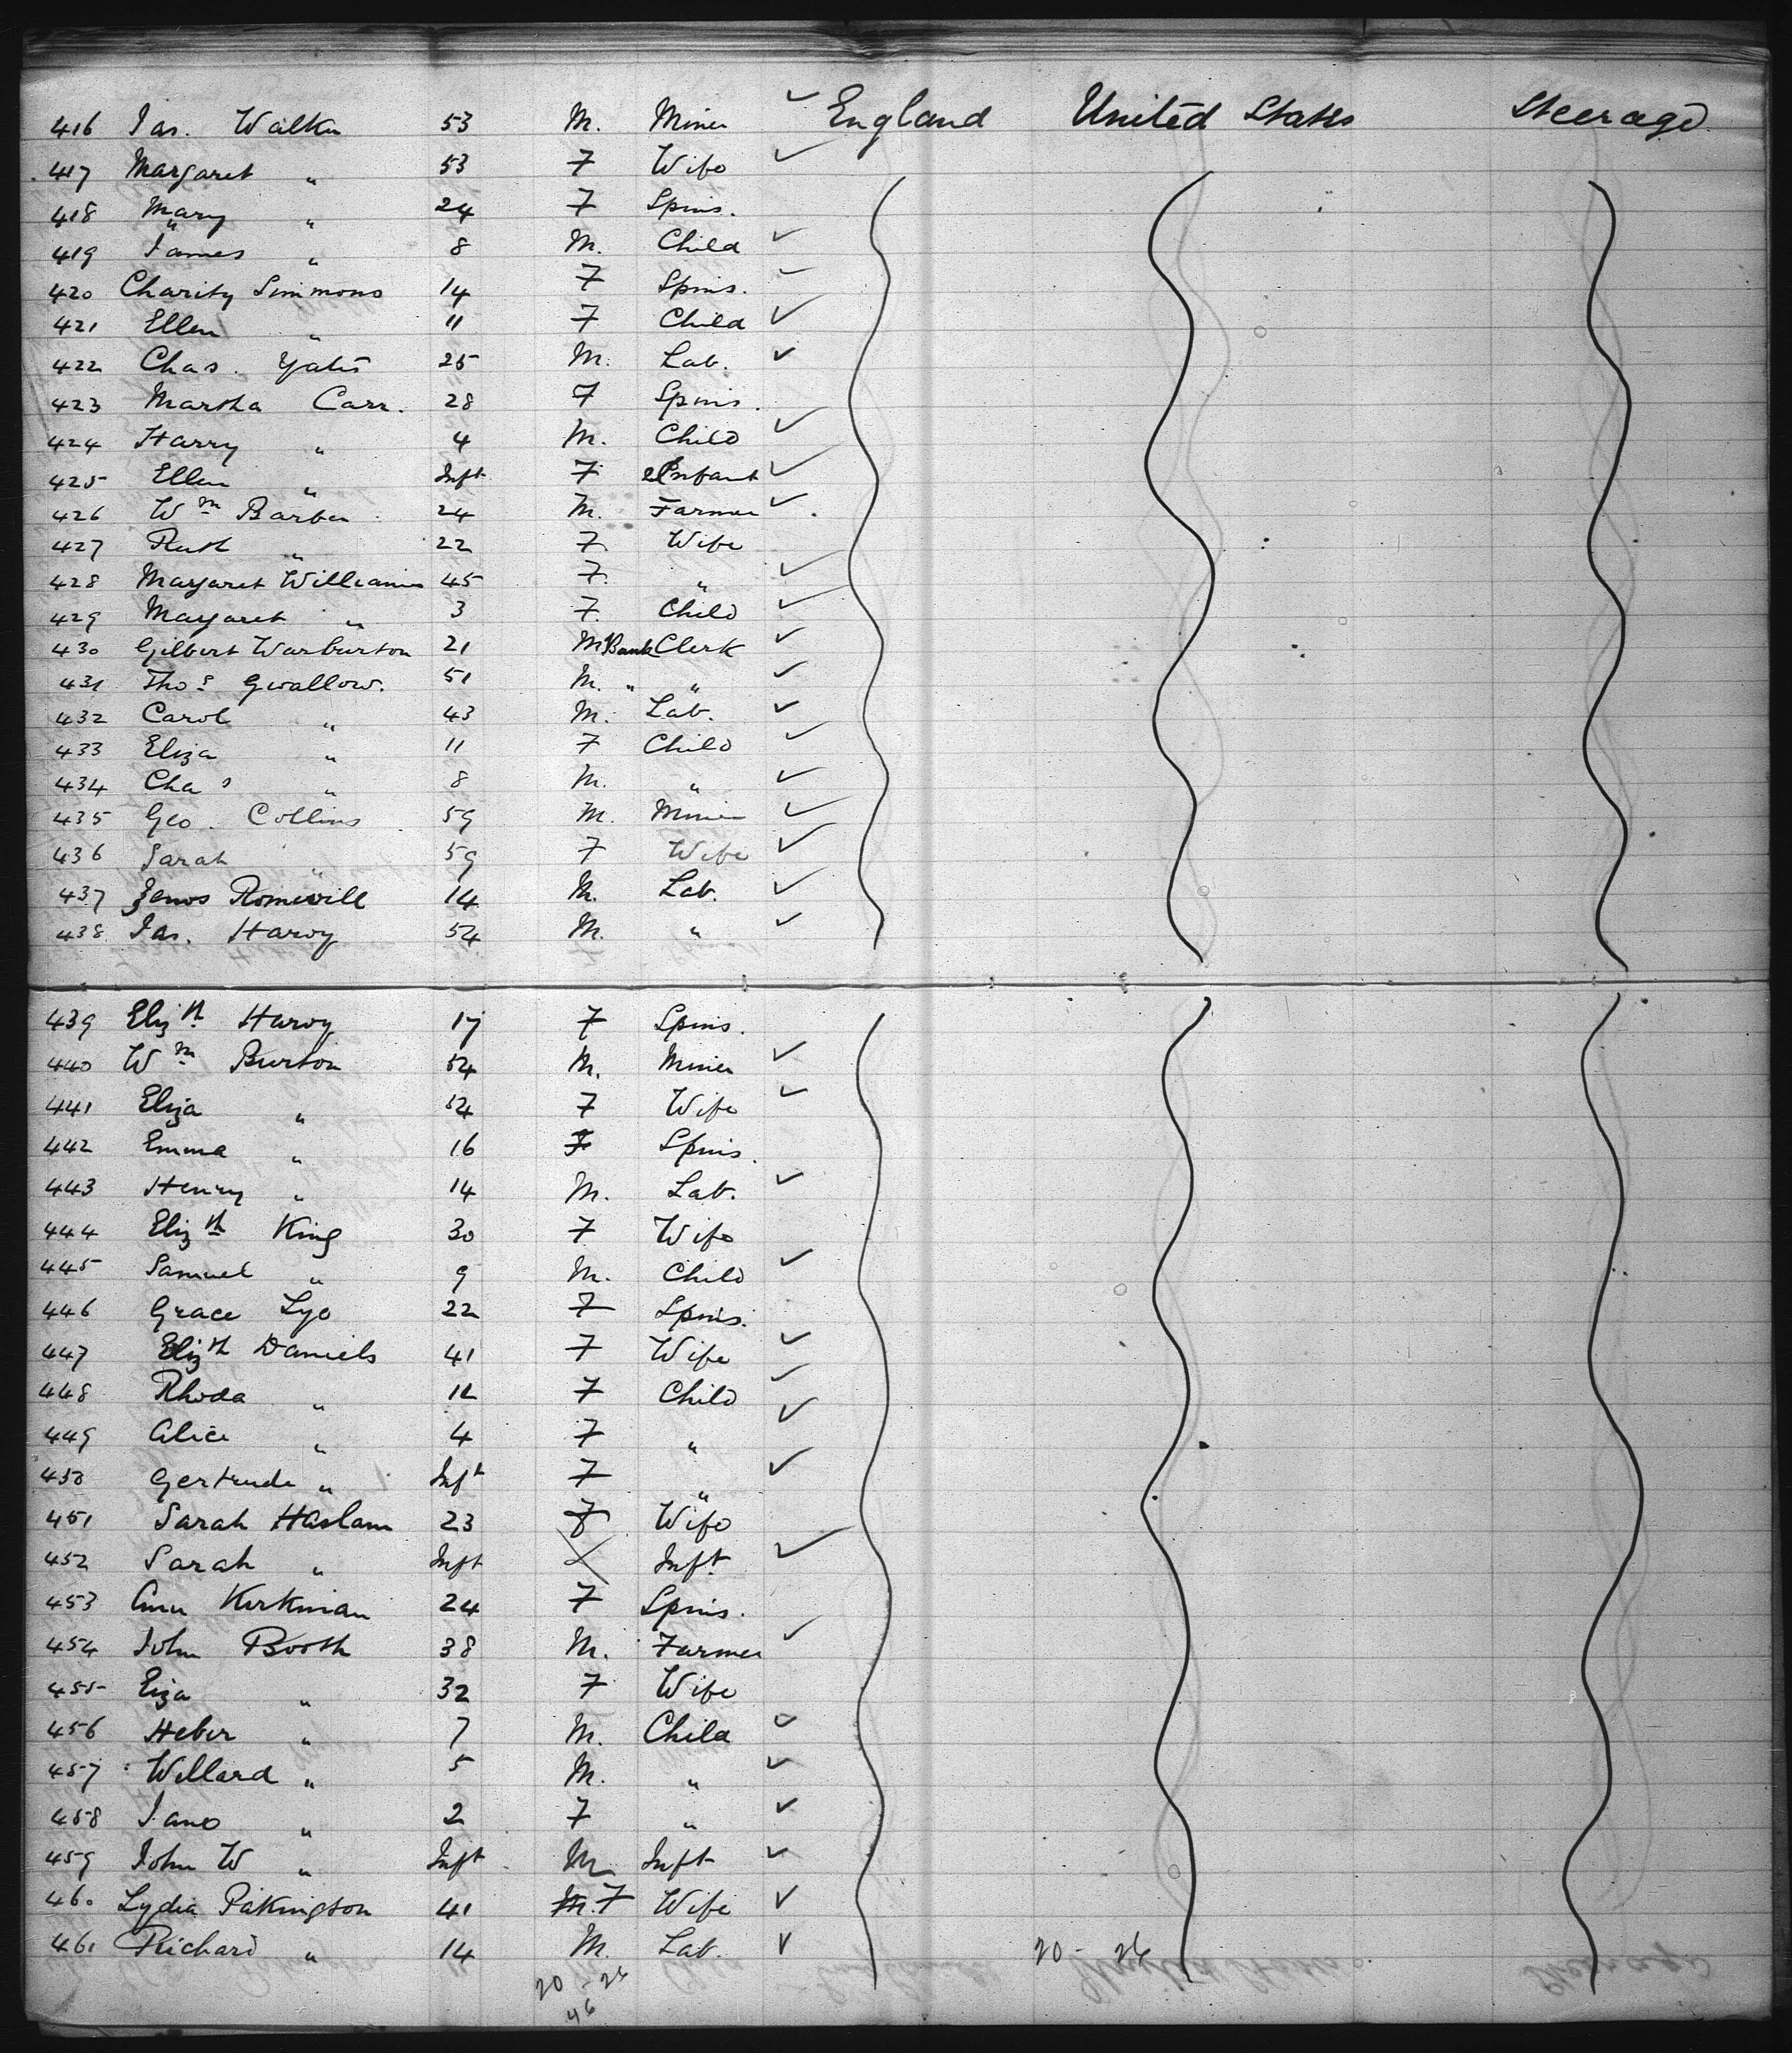 416 Jas. Walker 53 M. Miner ✓ England United States Steerage
417 Margaret " 53 F Wife ✓
418 Mary " 24 F Spins.
419 James " 8 M. Child ✓
420 Charity Simmons 14 F Spins.
421 Ellen " 11 F Child ✓
422 Chas. Yates 25 M. Lab. ✓
423 Martha Carr. 28 F Spins.
424 Harry " 4 M. Child ✓
425 Ellen " Inft F Infant ✓
426 Wm Barber 24 M. Farmer ✓
427 Ruth " 22 F. Wife
428 Margaret Williams 45 F. " ✓
429 Margaret " 3 F. Child ✓
430 Gilbert Warburton 21 M Bank Clerk ✓
431 Thos Gwallow. 51 M. " " ✓
432 Carol " 43 M. Lab. ✓
433 Eliza " 11 F Child ✓
434 Chas " 8 M. " ✓
435 Geo. Collins 59 M. Miner ✓
436 Sarah " 59 F Wife ✓
437 14 M. Lab. ✓
438 Jas. Harvy 54 M. " ✓
439 Elizth Harvy 17 F Spins.
440 Wm Burton 54 M. Miner ✓
441 Eliza " 54 F Wife ✓
442 Emma " 16 F Spins.
443 Henry " 14 M. Lab. ✓
444 Elizth King 30 F Wife
445 Samuel " 9 M. Child ✓
446 Grace Lye 22 F Spins.
447 Elizth Daniels 41 F Wife ✓
448 Rhoda " 12 F Child ✓
449 Alice " 4 F " ✓
450 Gertrude " Inft F " ✓
451 Sarah Haslam 23 F Wife
452 Sarah " Inft Inft ✓
453 Ann Kirkman 24 F Spins.
454 John Booth 38 M. Farmer ✓
455 Eiza " 32 F Wife
456 Heber " 7 M. Child ✓
457 Willard " 5 M. " ✓
458 Jane " 2 F " ✓
459 John W " Inft M Inft ✓
460 Lydia Pakington 41 M. F Wife ✓
461 Richard " 14 M. Lab. ✓ 20 - 26
20 - 26
46